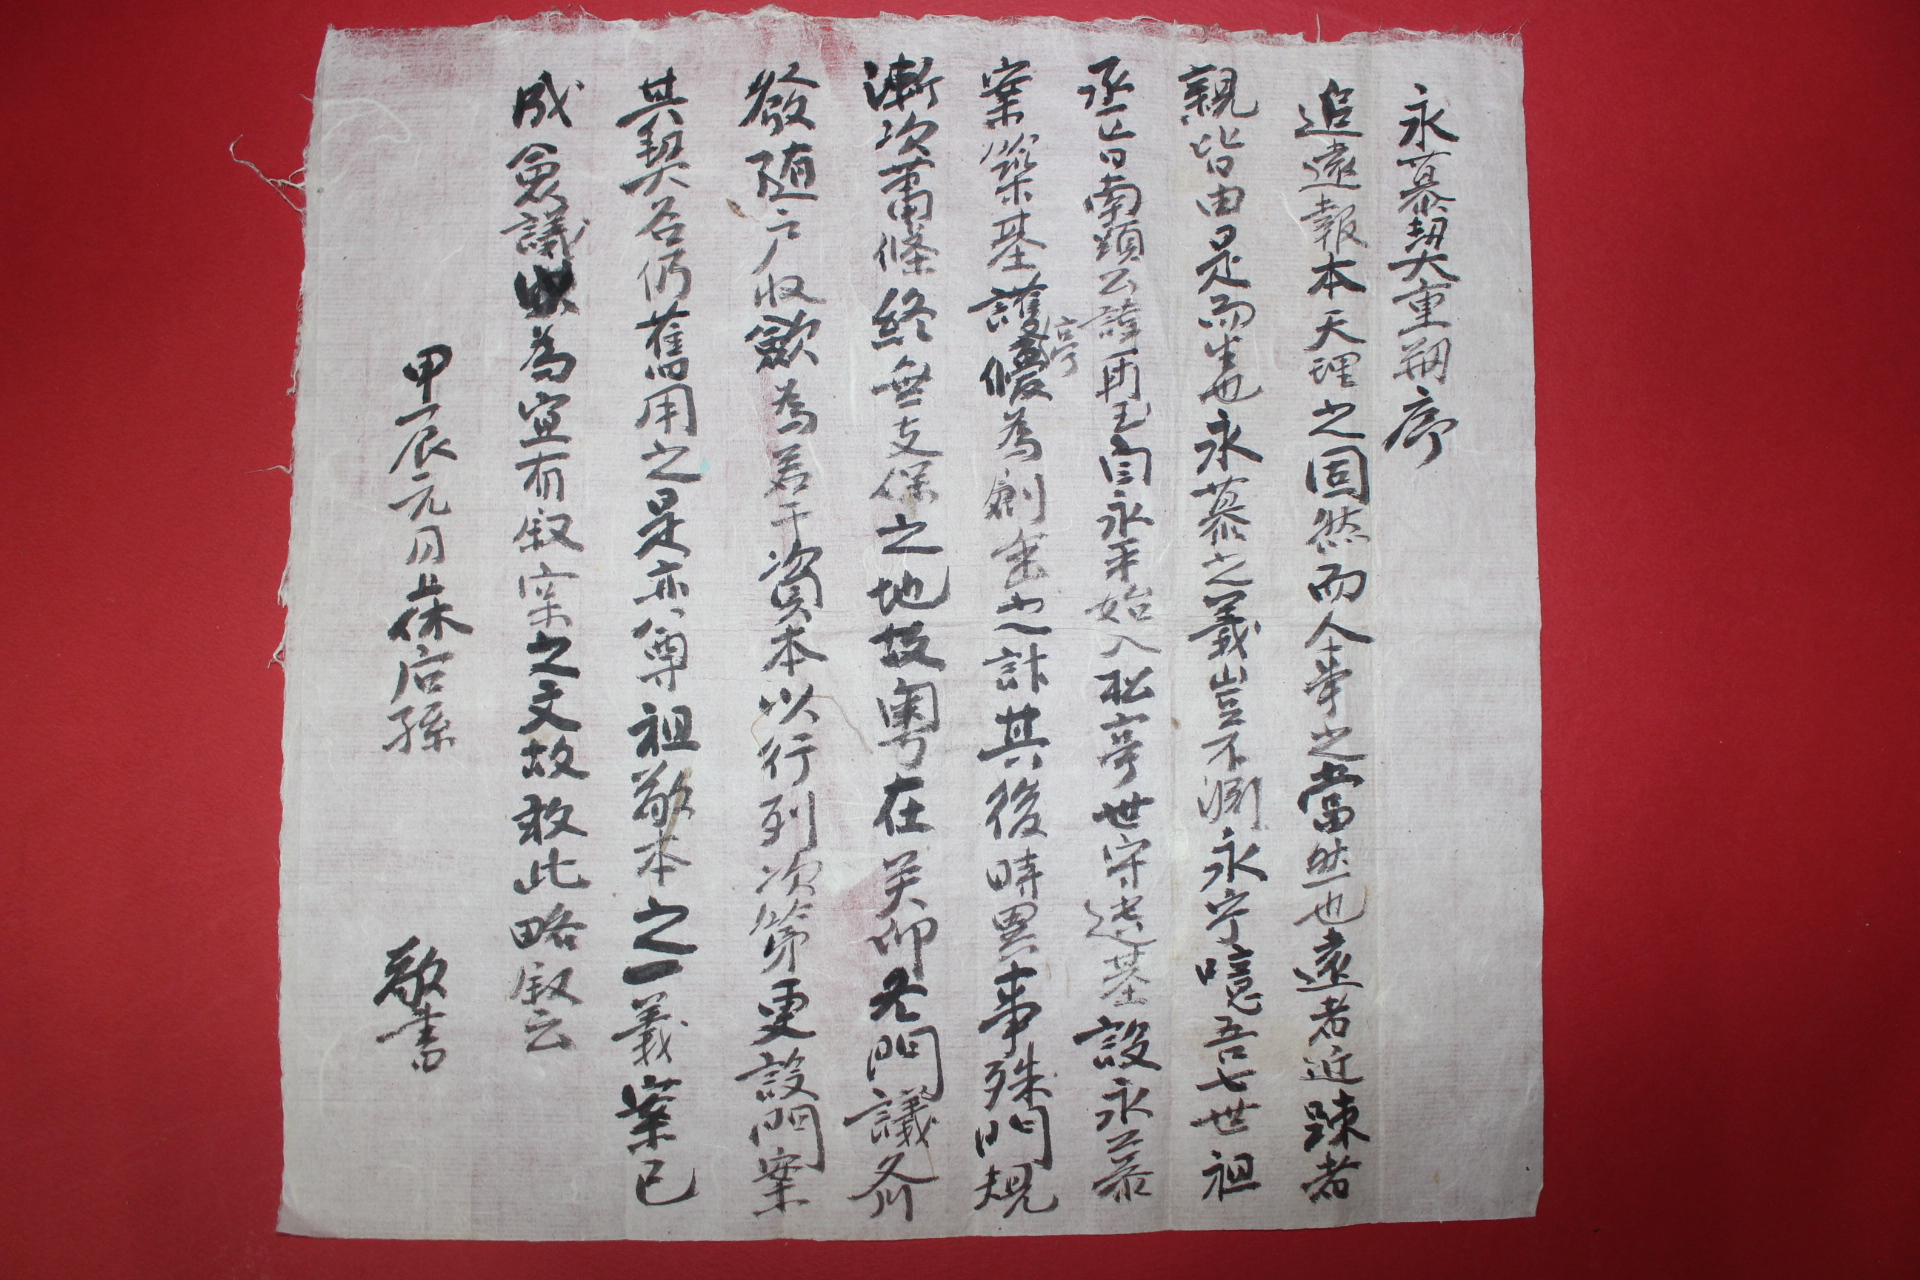 永慕契大重刱序
追遠報本天理之固然而人事之當然也遠者近踈者
親皆由是而生也永慕之義豈不淵永乎噫吾七世祖
丞旨南顕公諱再玉自永平始入松亭世守遺基設永慕
案築基護亭為創垂之計其後時異事殊門規
漸次蕭條終無支保之地故粤在癸卯冬門議齐
發随户收歛為若干資本以行列次第更設門案
其契名仍舊用之是亦尊祖敬本之一義案已
成僉議以為宜有叙案之文故敢此略叙云
甲辰元月 休后孫 敬書